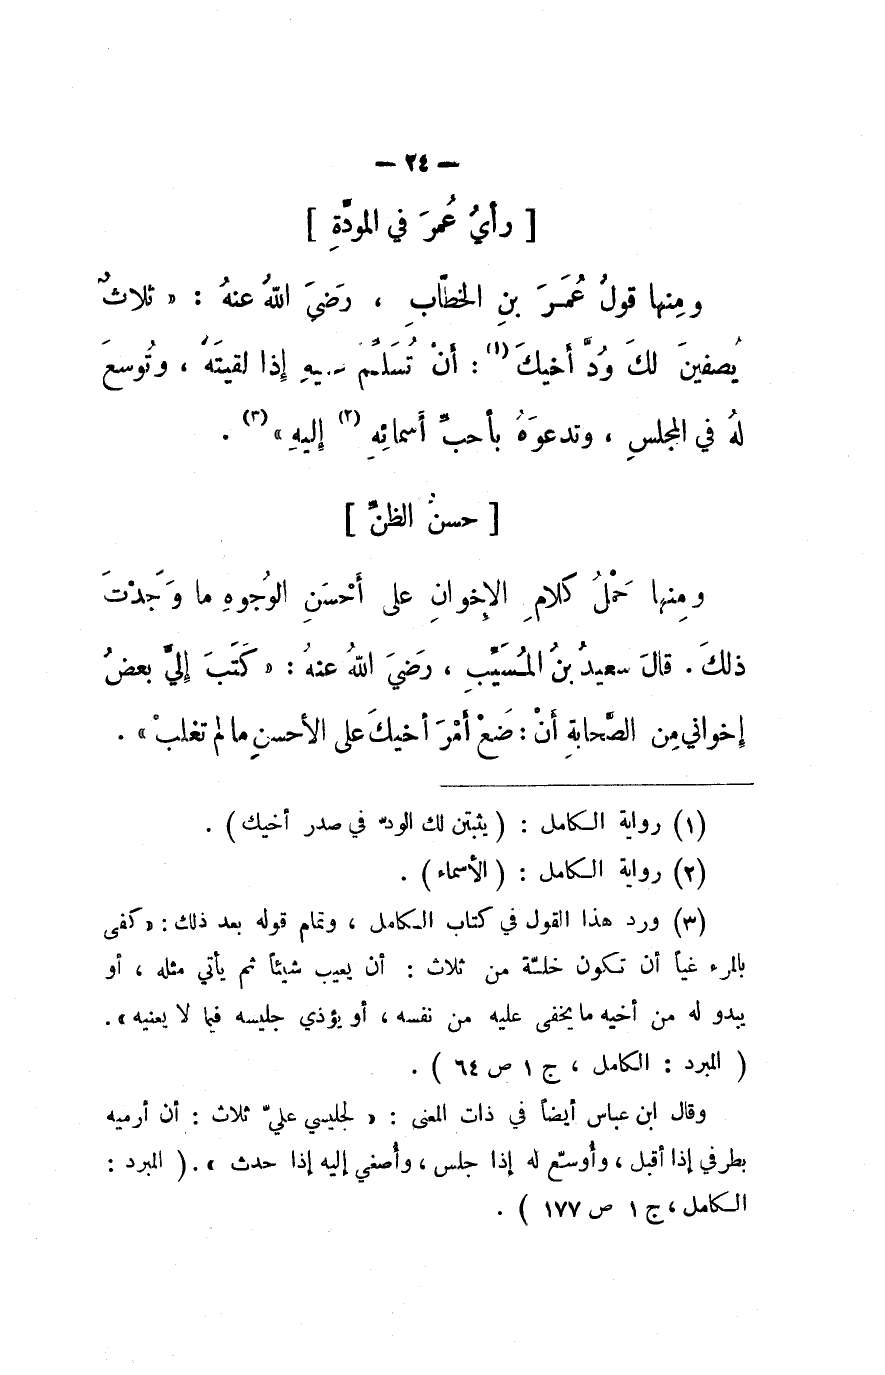 — ٢٤ —
[ رأيُ عُمرَ في المودَّةِ ]
ومِنها قولُ عُمَـرَ بنِ الخطّابِ ، رَضيَ اللهُ عنهُ : « ثلاثٌ
يُصفينَ لكَ وُدَّ أخيكَ (١) : أنْ تُسَلِّمَ إذا لقيتَهُ ، وتُوسعَ
لهُ في المجلسِ ، وتدعوَهُ بأحبِّ أسمائِهِ (٢) إليهِ » (٣) .
[ حسنُ الظنِّ ]
ومِنها حَمْلُ كلامِ الإِخوانِ على أحْسَنِ الوُجوهِ ما وَجَدْتَ
ذلكَ . قالَ سعيدُ بنُ المُسَيَّبِ ، رَضيَ اللهُ عنهُ : « كَتَبَ إليَّ بعضُ
إخواني مِن الصَّحابةِ أنْ : ضَعْ أمْرَ أخيكَ على الأحسنِ ما لم تغلبْ » .
(١) رواية الكامل : ( يثبتن لك الودّ في صدر أخيك ) .
(٢) رواية الكامل : ( الأسماء ) .
(٣) ورد هذا القول في كتاب الكامل ، وتمام قوله بعد ذلك : « كفى
بالمرء غياً أن تكون خلّة من ثلاث : أن يعيب شيئاً ثم يأتي مثله ، أو
يبدو له من أخيه ما يخفى عليه من نفسه ، أو يؤذي جليسه فيما لا يعنيه » .
( المبرد : الكامل ، ج ١ ص ٦٤ ) .
وقال ابن عباس أيضاً في ذات المعنى : « لجليسي عليّ ثلاث : أن أرميه
بطرفي إذا أقبل ، وأُوسّع له إذا جلس ، وأُصغي إليه إذا حدث » . ( المبرد :
الكامل ، ج ١ ص ١٧٧ ) .